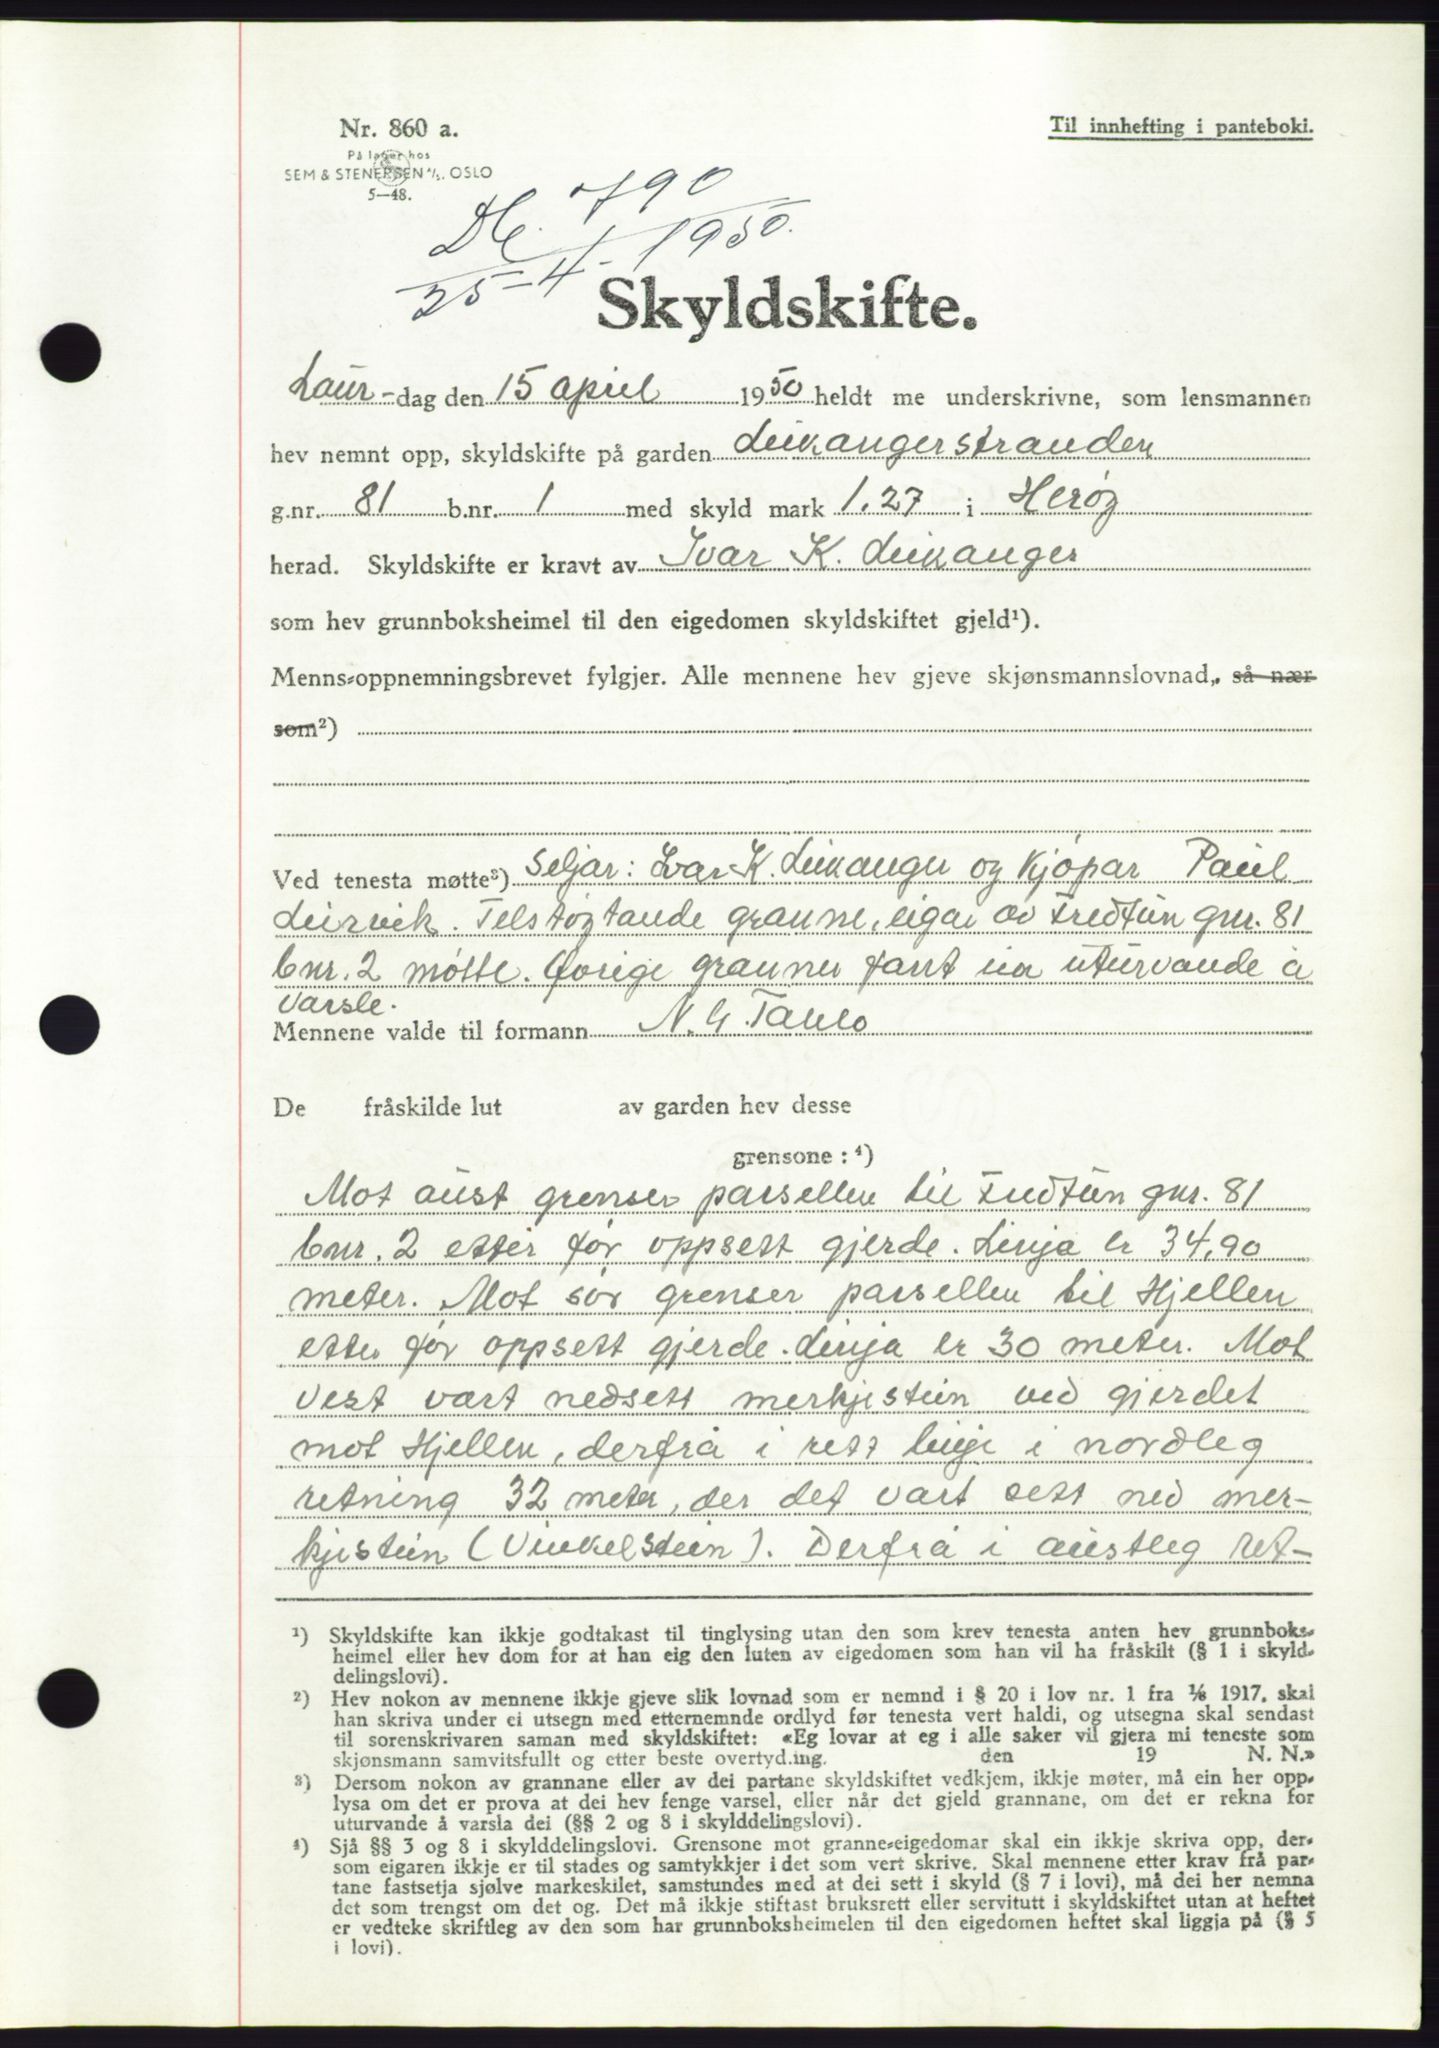 Nr. 860 a.
På lager hos
SEM & STENERSEN A/S. OSLO
5—48.
Til innhefting i panteboki.
790
25-4-1950.
Skyldskifte.
Laur-dag den 15 april 1950 heldt me underskrivne, som lensmannen
hev nemnt opp, skyldskifte på garden Leikangerstranden
g.nr. 81 b.nr. 1 med skyld mark 1.27 i Herøy
herad. Skyldskifte er kravt av Ivar K. Leikanger
som hev grunnboksheimel til den eigedomen skyldskiftet gjeld¹).
Menns-oppnemningsbrevet fylgjer. Alle mennene hev gjeve skjønsmannslovnad, så nær
som²)
Ved tenesta møtte³) Seljar: Ivar K. Leikanger og Kjøpar Paul
Leirvik. Tilstøytande granne, eigar av Fredtun gnr. 81
bnr. 2 møtte. Øvrige granner fant ein uturvande å
varsle.
Mennene valde til formann N. G.
De fråskilde lut av garden hev desse
grensone : ⁴)
Mot aust grenser parsellen til Fredtun gnr. 81
bnr. 2 etter før oppsett gjerde. Linja er 34,90
meter. Mot sør grenser parsellen til Hjellen
etter før oppsett gjerde. Linja er 30 meter. Mot
vest vart nedsett merkjestein ved gjerdet
mot Hjellen, derfrå i rett linje i nordleg
retning 32 meter, der det vart sett ned mer-
kjestein (Vinkelstein). Derfrå i austleg ret-
¹) Skyldskifte kan ikkje godtakast til tinglysing utan den som krev tenesta anten hev grunnboks-
heimel eller hev dom for at han eig den luten av eigedomen som han vil ha fråskilt (§ 1 i skyld-
delingslovi).
²) Hev nokon av mennene ikkje gjeve slik lovnad som er nemnd i § 20 i lov nr. 1 fra ⅙ 1917, skal
han skriva under ei utsegn med etternemnde ordlyd før tenesta vert haldi, og utsegna skal sendast
til sorenskrivaren saman med skyldskiftet: «Eg lovar at eg i alle saker vil gjera mi teneste som
skjønsmann samvitsfullt og etter beste overtyd.ing. den 19 N. N.»
³) Dersom nokon av grannane eller av dei partane skyldskiftet vedkjem, ikkje møter, må ein her opp-
lysa om det er prova at dei hev fenge varsel, eller når det gjeld grannane, om det er rekna for
uturvande å varsla dei (§§ 2 og 8 i skylddelingslovi).
⁴) Sjå §§ 3 og 8 i skylddelingslovi. Grensone mot granne-eigedomar skal ein ikkje skriva opp, der-
som eigaren ikkje er til stades og samtykkjer i det som vert skrive. Skal mennene etter krav frå par-
tane fastsetja sjølve markeskilet, samstundes med at dei sett i skyld (§ 7 i lovi), må dei her nemna
det som trengst om det og. Det må ikkje stiftast bruksrett eller servitutt i skyldskiftet utan at heftet
er vedteke skriftleg av den som har grunnboksheimelen til den eigedomen heftet skal liggja på (§ 5
i lovi).